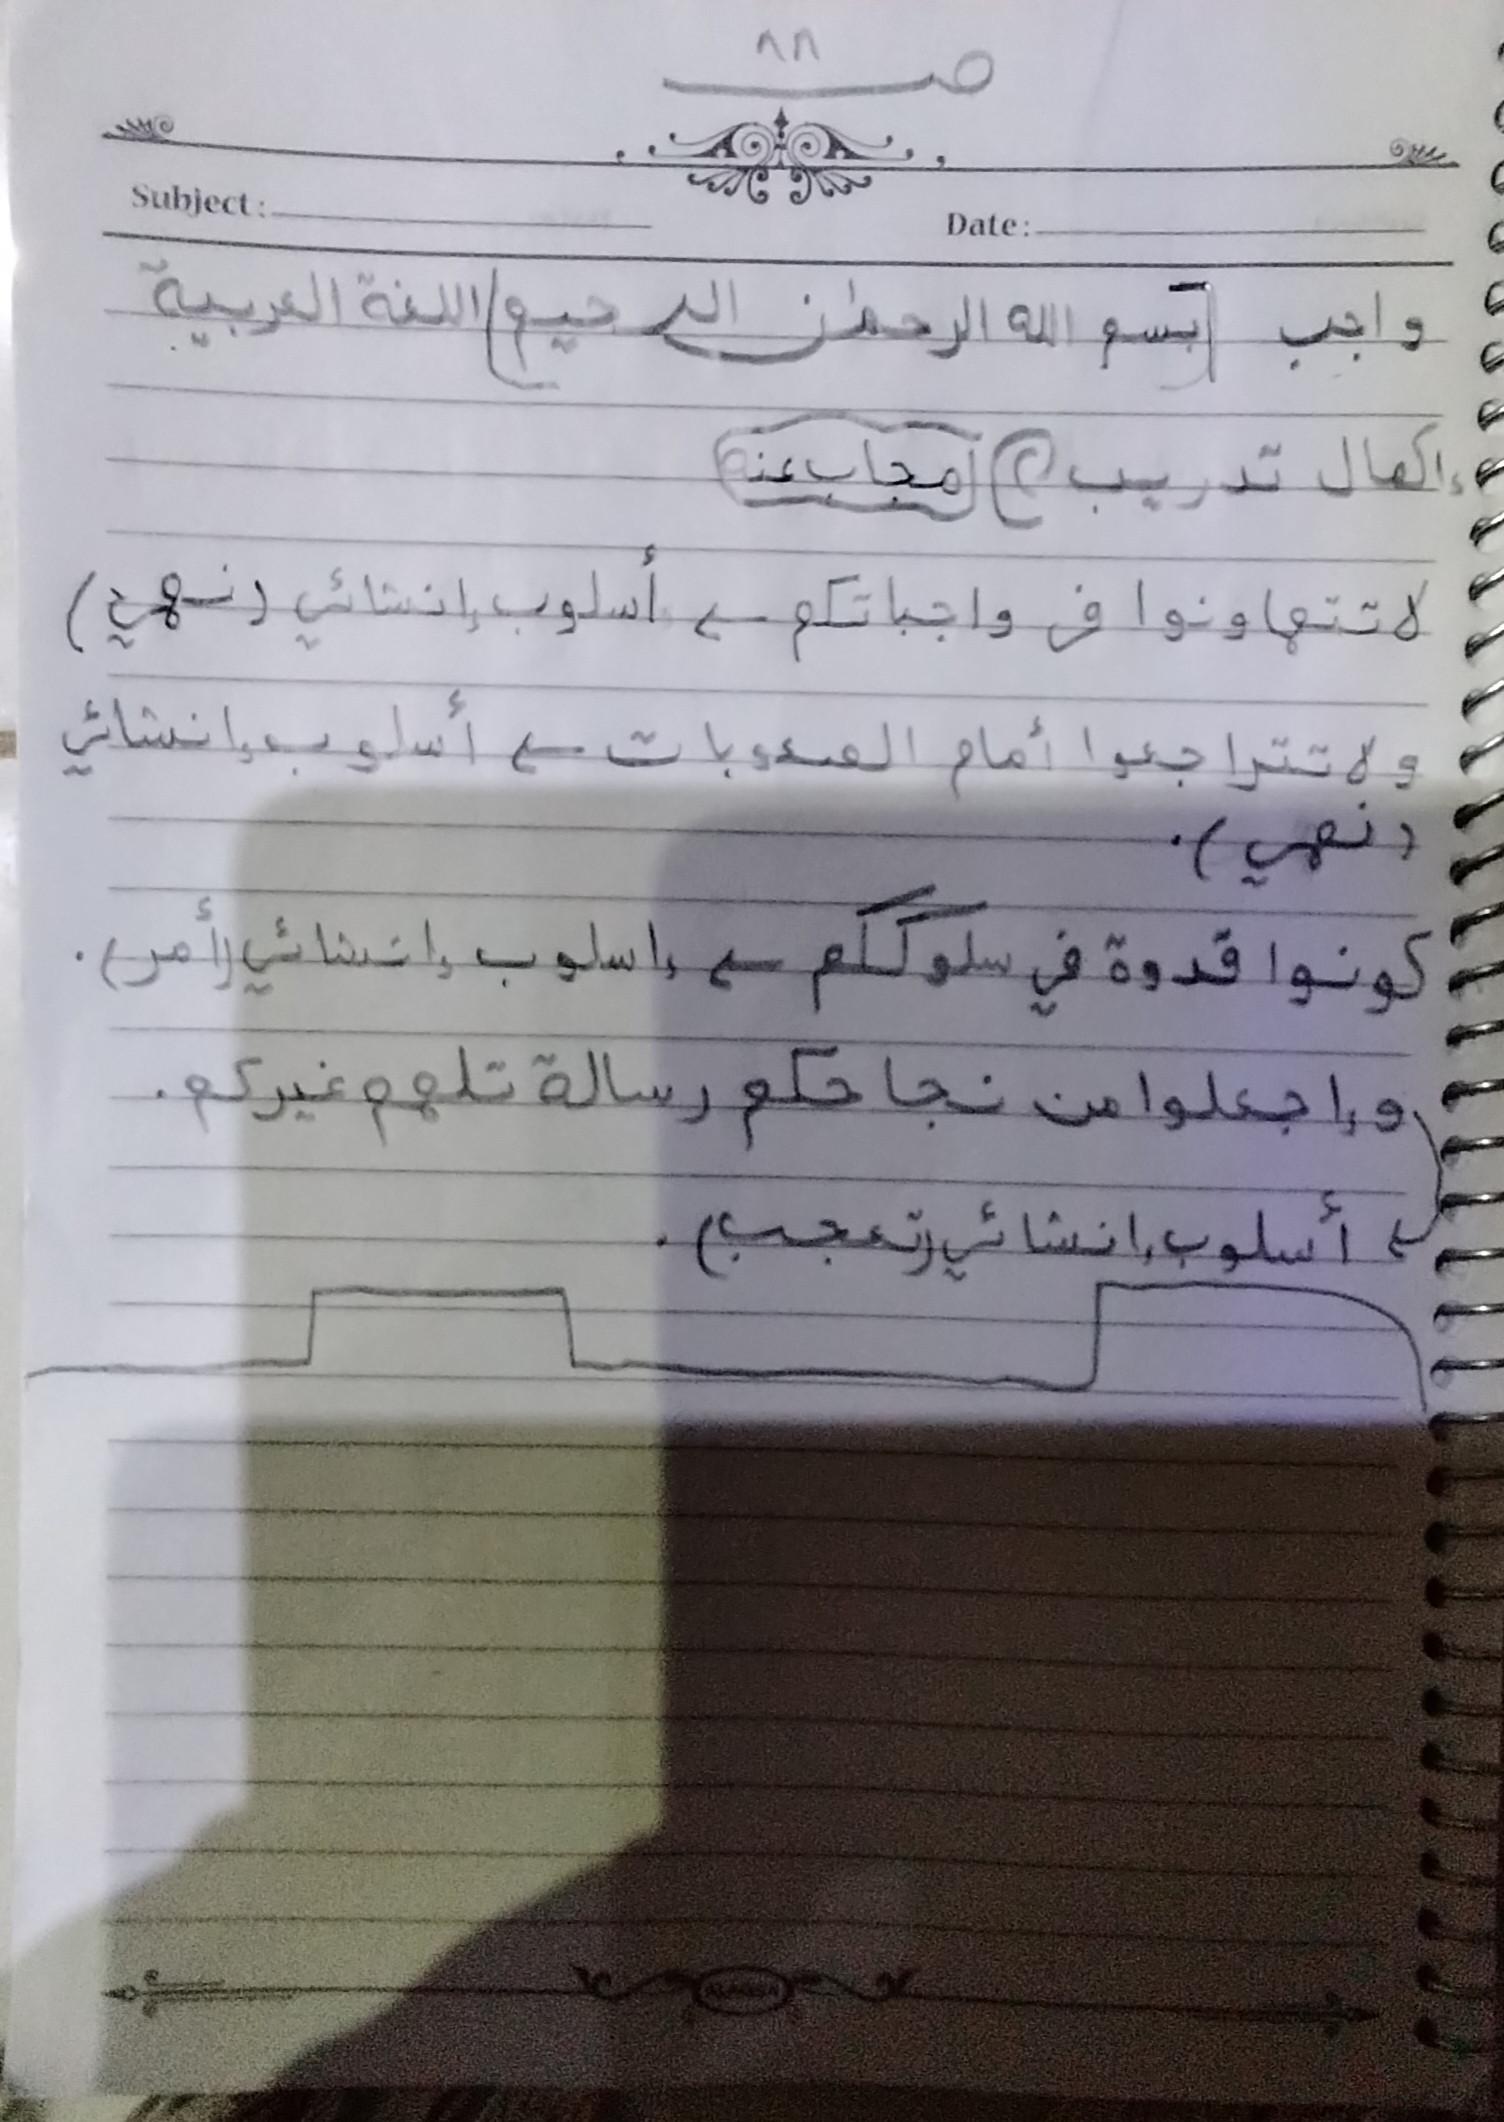 ص ٨٨
Subject:
Date:
واجب [بسم الله الرحمٰن الرحيم] اللغة العربية
إكمال تدريب ٢ [مجاب عنه]
لا تتهاونوا في واجباتكم ← أسلوب إنشائي (نهي)
ولا تتراجعوا أمام الصعوبات ← أسلوب إنشائي
(نهي).
كونوا قدوة في سلوككم ← إسلوب إنشائي (أمر).
وإجعلوا من نجاحكم رسالة تلهم غيركم.
← أسلوب إنشائي (تعجب).